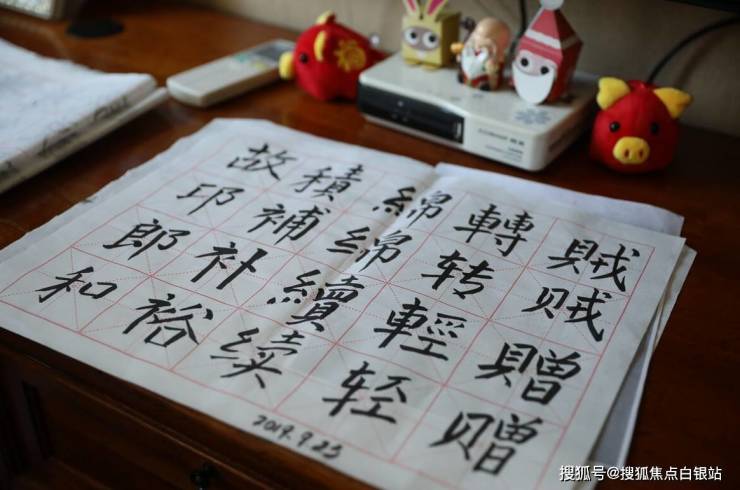 賊贼贈赠
轉转輕轻
綿绵續续
積補补裕
故邱郎和
2019.9.25
搜狐号@搜狐焦点白银站